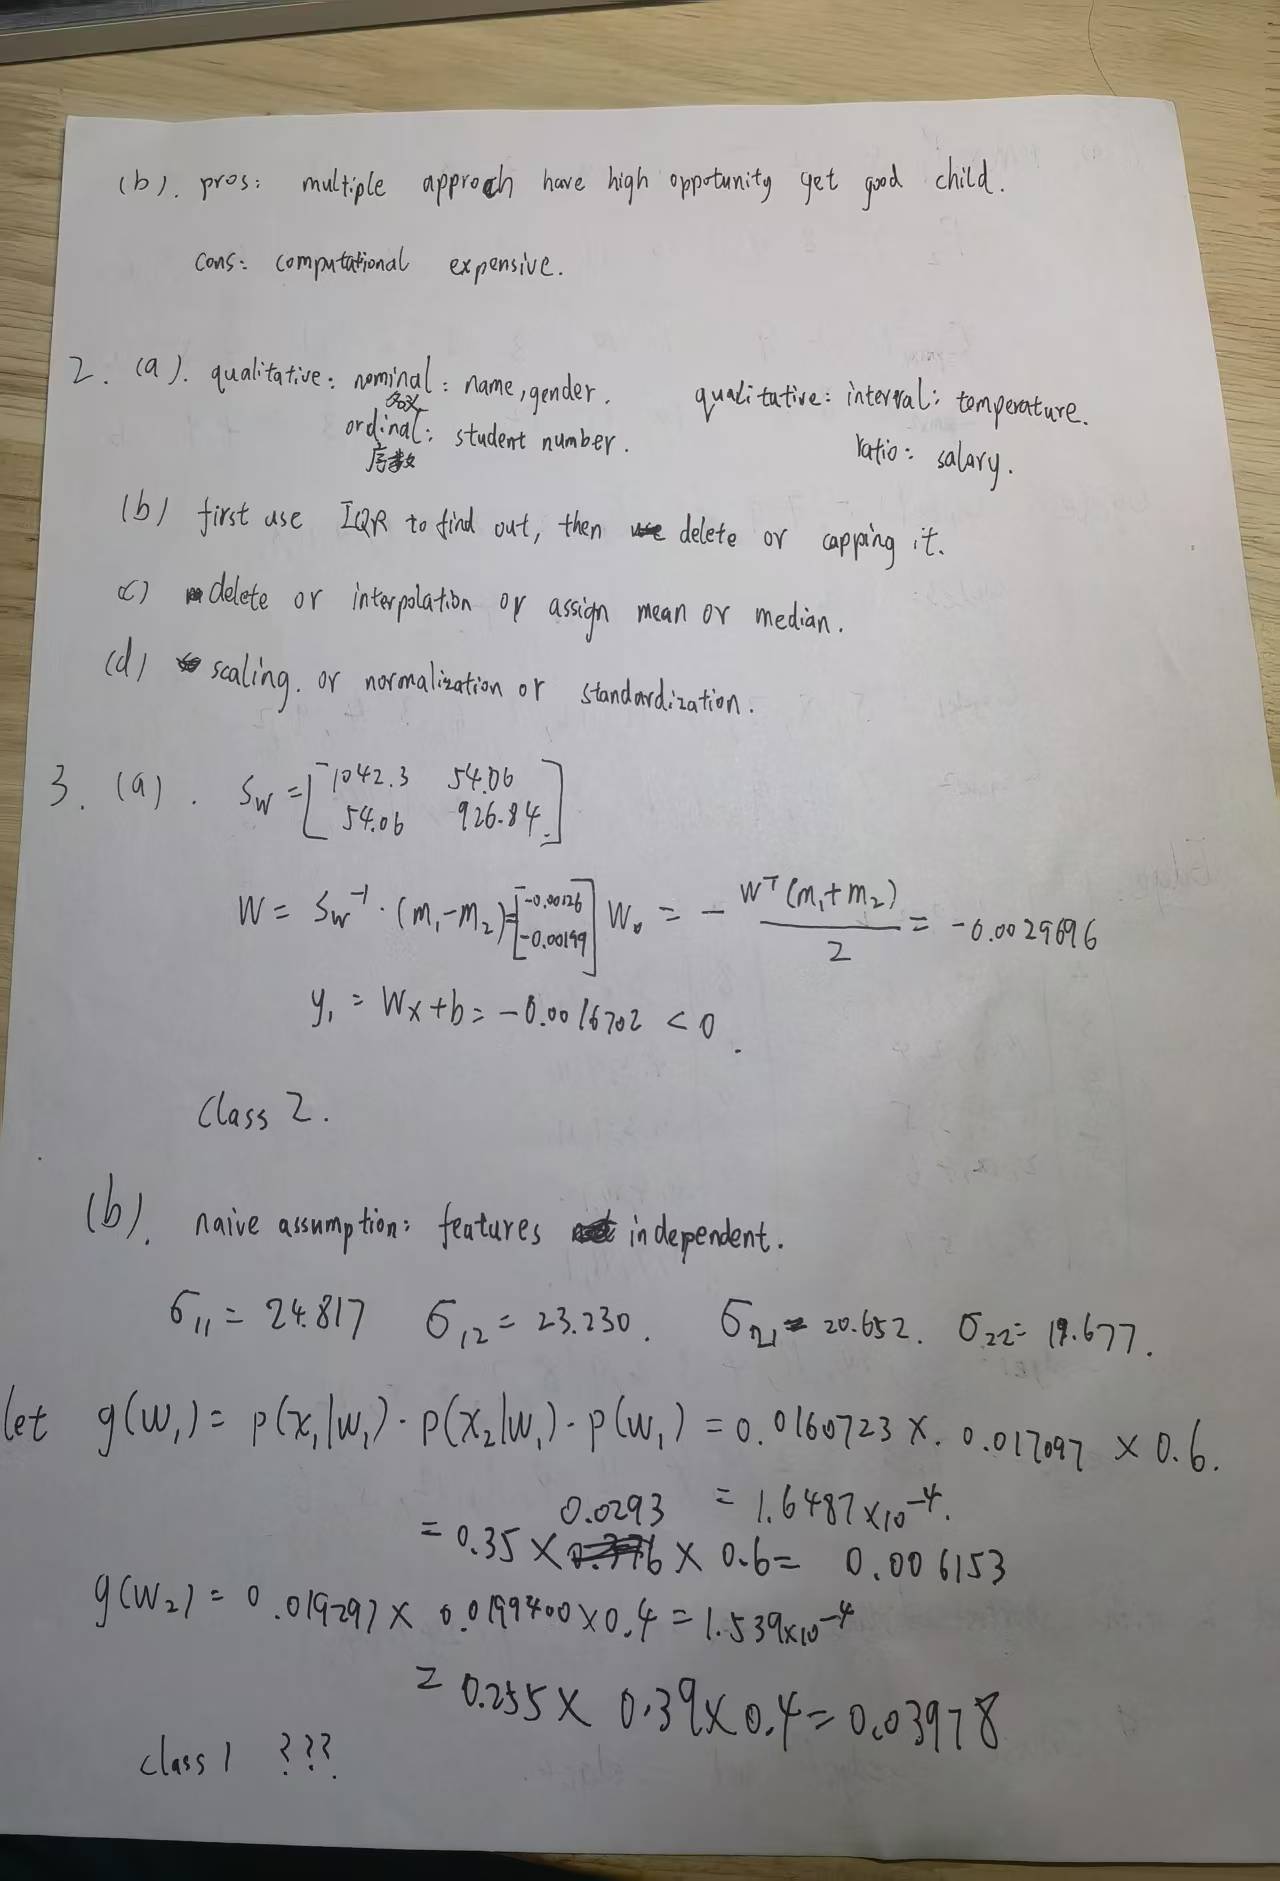 (b). pros: multiple approch have high oppotunity get good child.
cons: computational expensive.
2. (a). qualitative: nominal: name, gender. qualitative: interval: temperature.
名义
ordinal: student number. ratio: salary.
序数
(b) first use IQR to find out, then delete or capping it.
(c) delete or interpolation or assign mean or median.
(d) scaling. or normalization or standardization.
3. (a). Sw = [1042.3 54.06
54.06 926.84]
W = Sw⁻¹ · (m₁-m₂) = [-0.00126
-0.00199] W₀ = - Wᵀ(m₁+m₂) / 2 = -0.0029696
y₁ = Wx+b = -0.0016702 < 0.
Class 2.
(b). naive assumption: features independent.
σ₁₁ = 24.817 σ₁₂ = 23.230. σ₂₁ = 20.652. σ₂₂ = 19.677.
let g(w₁) = p(x₁|w₁) · p(x₂|w₁) · p(w₁) = 0.0160723 × 0.017097 × 0.6.
= 1.6487×10⁻⁴.
= 0.35 × 0.0293 × 0.6 = 0.006153
g(w₂) = 0.019297 × 0.0199400 × 0.4 = 1.539×10⁻⁴
= 0.255 × 0.39 × 0.4 = 0.03978
class 1 ???